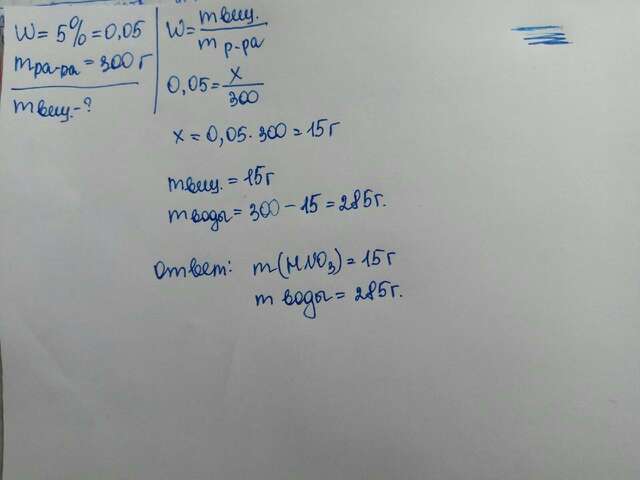 W = 5% = 0,05
mра-ра = 300 г
mвещ. - ?
W = mвещ. / m р-ра
0,05 = x / 300
x = 0,05 · 300 = 15 г
mвещ. = 15 г
mводы = 300 - 15 = 285 г.
Ответ: m(HNO3) = 15 г
m воды = 285 г.